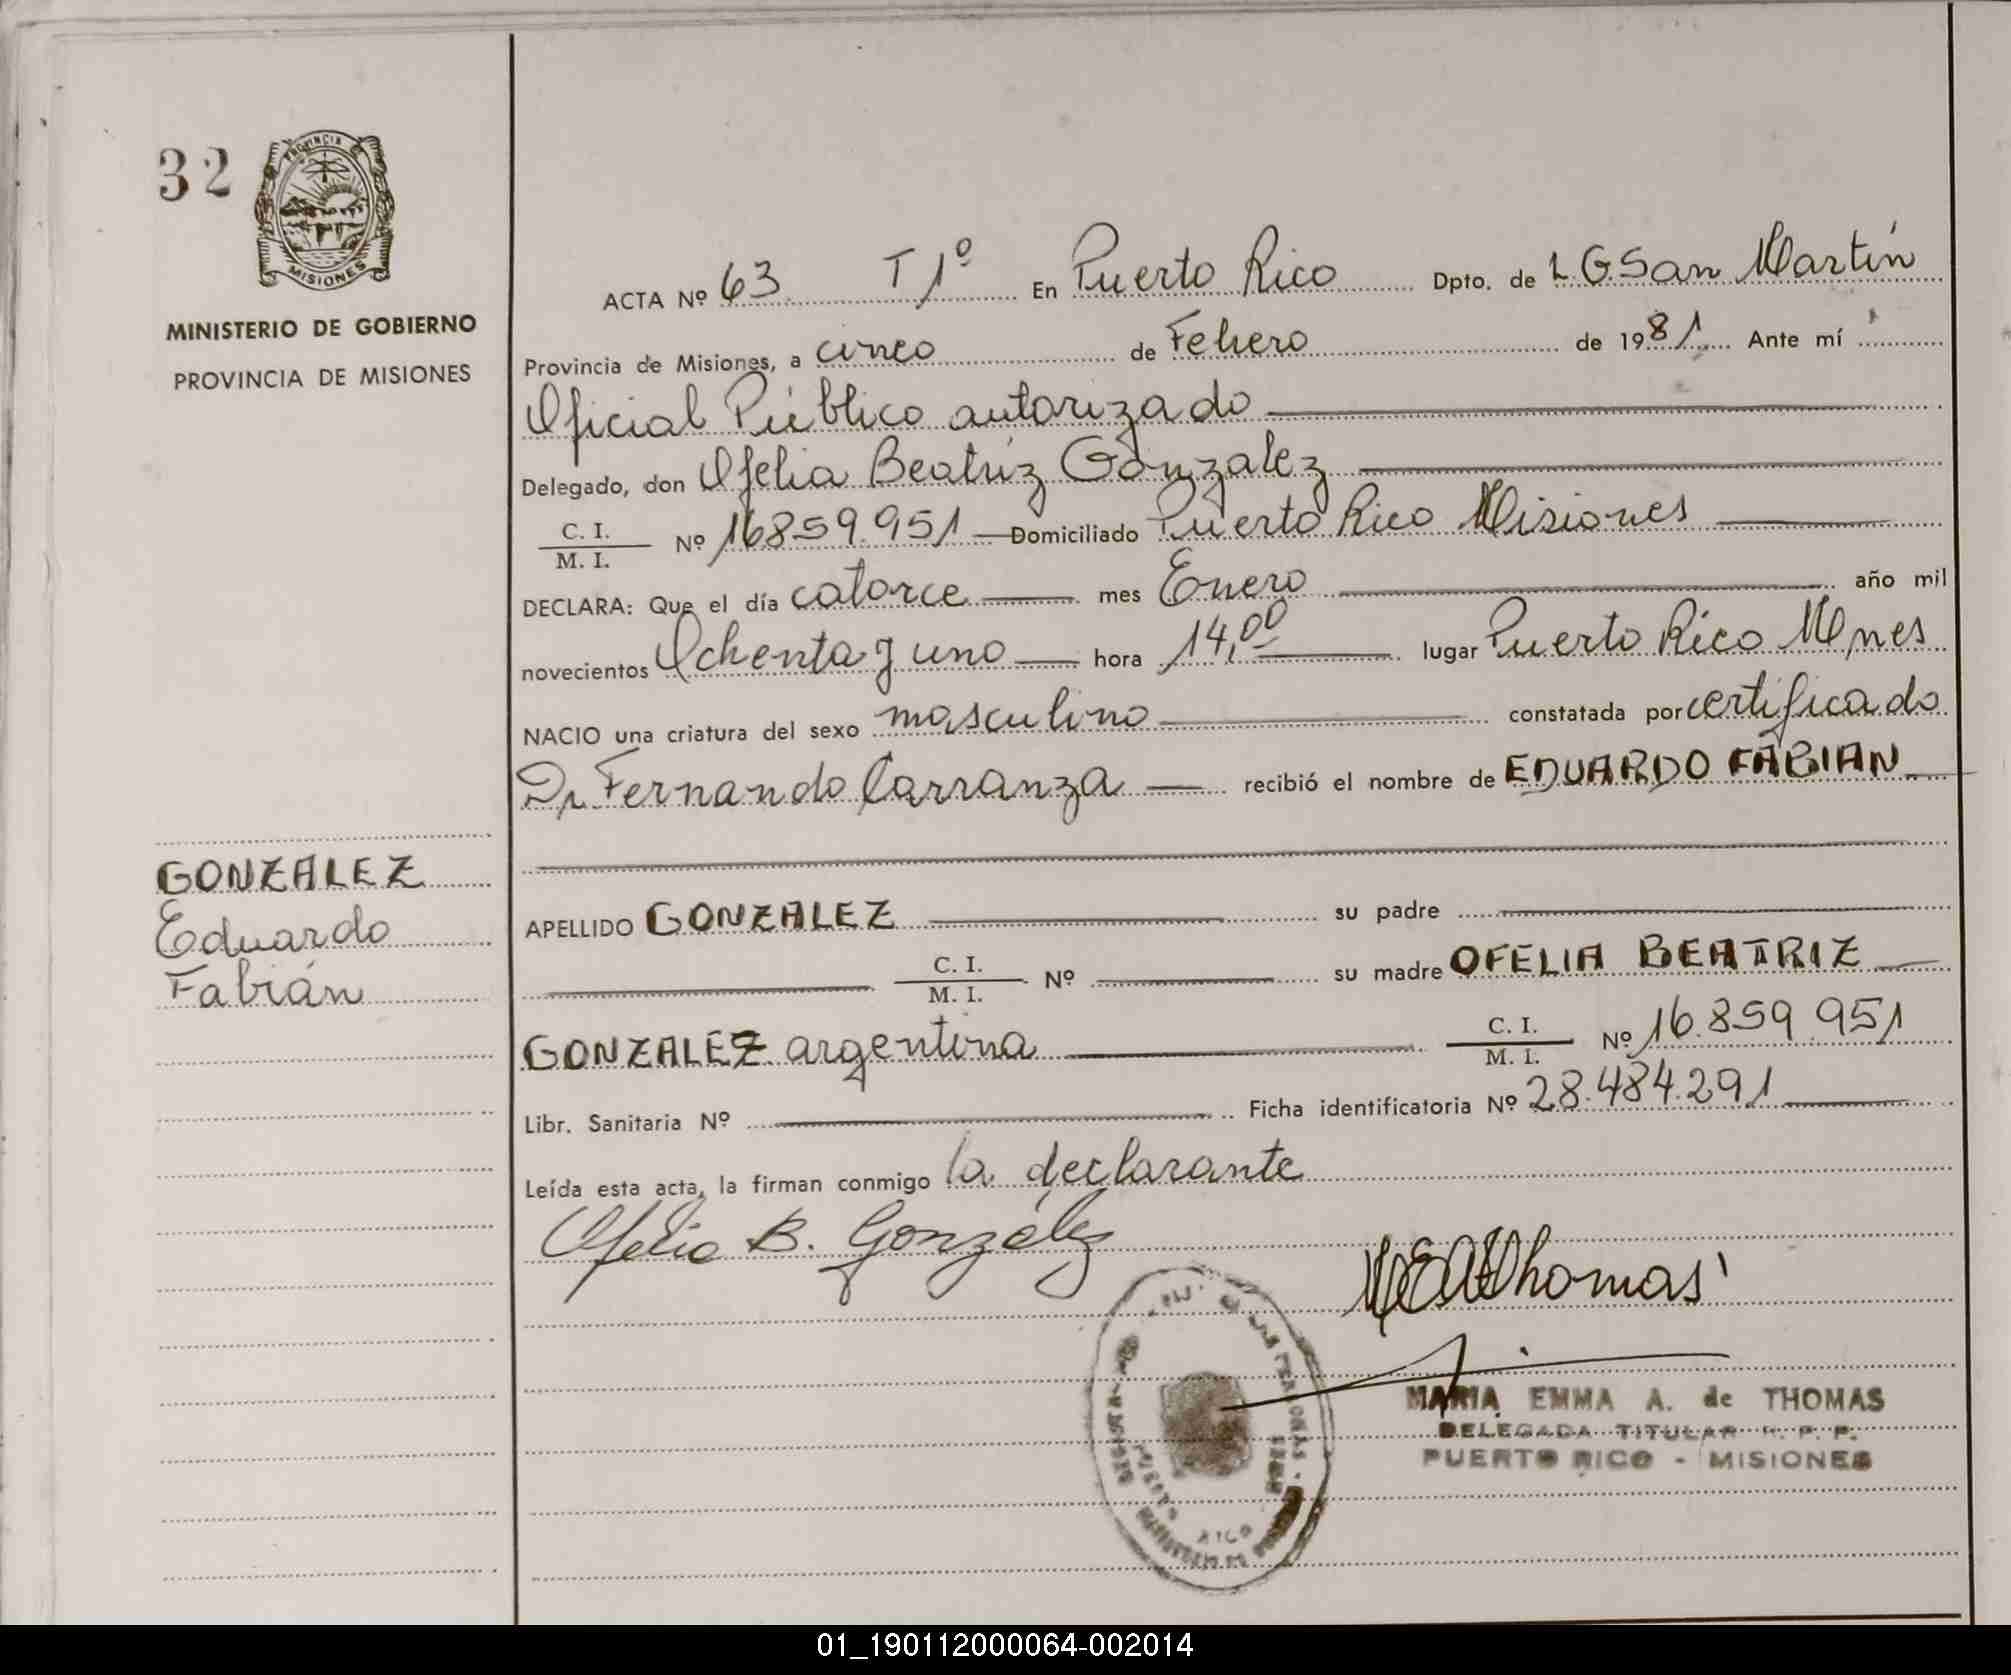 32
PROVINCIA
MISIONES
MINISTERIO DE GOBIERNO
PROVINCIA DE MISIONES
GONZALEZ
Eduardo
Fabián
ACTA Nº 63 T 1º En Puerto Rico Dpto. de L.G.San Martín
Provincia de Misiones, a cinco de Febrero de 1981 Ante mí
Oficial Público autorizado
Delegado, don Ofelia Beatríz González
C. I.
M. I. Nº 16859.951 Domiciliado Puerto Rico Misiones
DECLARA: Que el día catorce mes Enero año mil
novecientos Ochenta y uno hora 14,00 lugar Puerto Rico Mnes
NACIO una criatura del sexo masculino constatada por certificado
Dr Fernando Carranza recibió el nombre de EDUARDO FABIAN
APELLIDO GONZALEZ su padre
C. I.
M. I. Nº su madre OFELIA BEATRIZ
GONZALEZ argentina C. I.
M. I. Nº 16.859.951
Libr. Sanitaria Nº Ficha identificatoria Nº 28.484.291
Leída esta acta, la firman conmigo la declarante
Ofelia B. González
MEAThomas
MARIA EMMA A. de THOMAS
DELEGADA TITULAR R. P. P.
PUERTO RICO - MISIONES
01_190112000064-002014